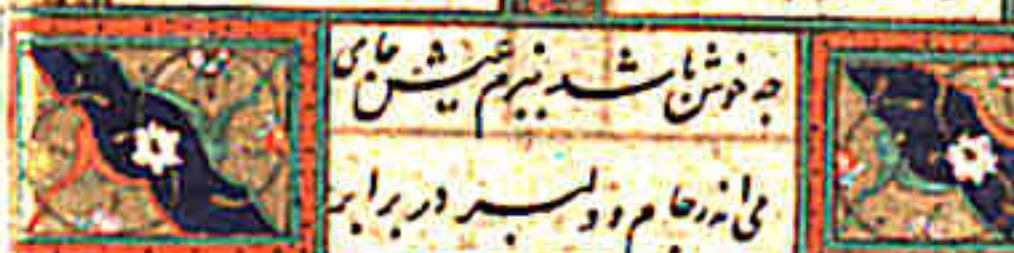 چه خوش باشد ببزم عیش جامی
می اندر جام و دلبر در برابر